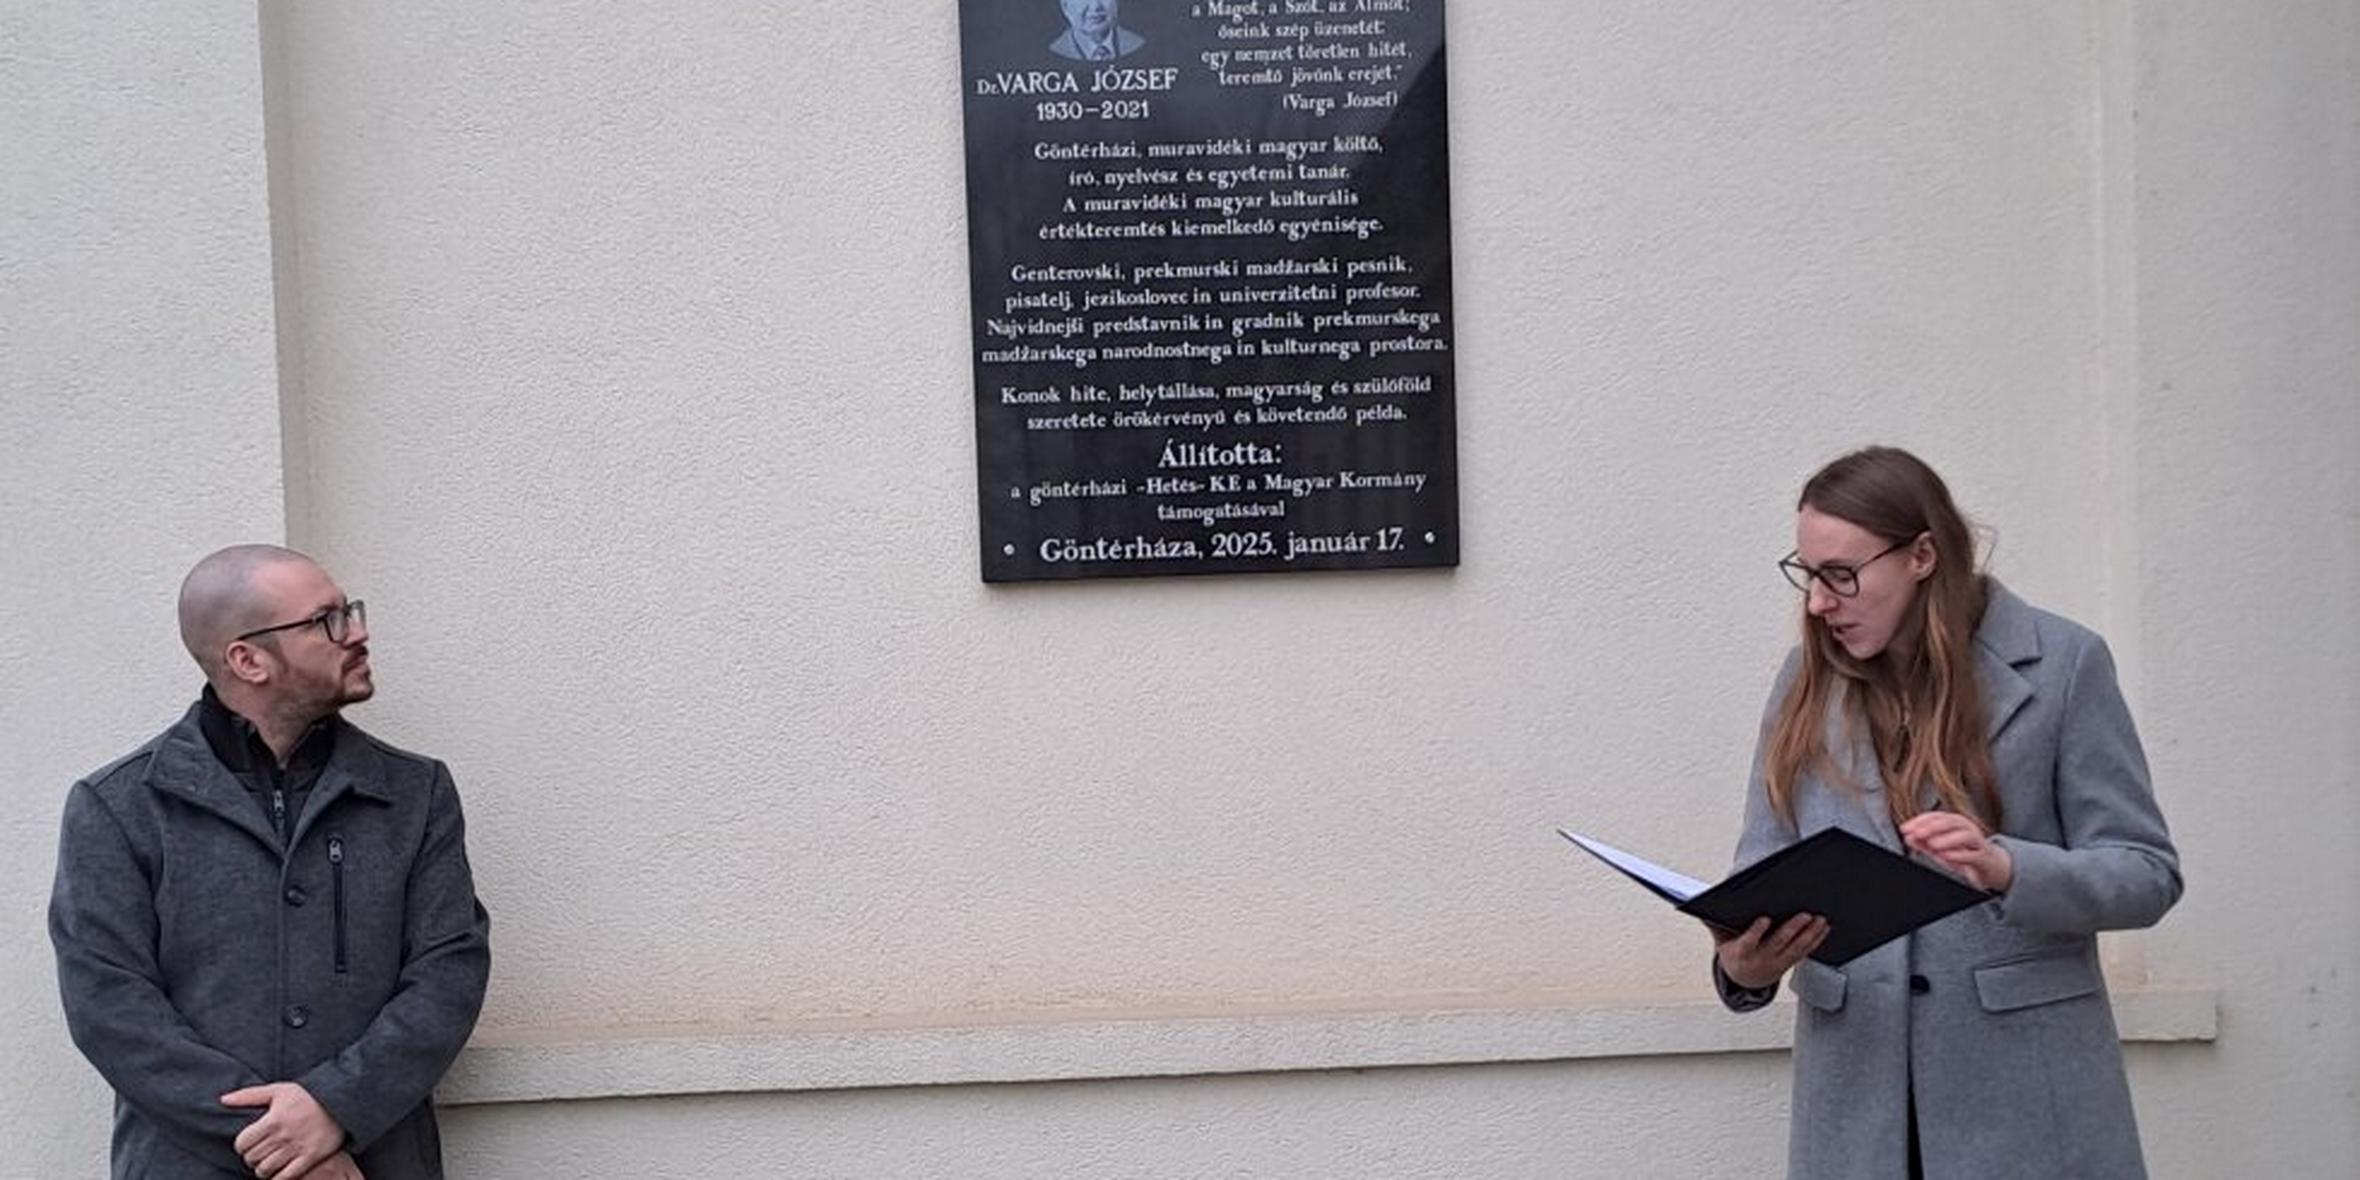 a Magot, a Szót, az Álmot;
őseink szép üzenetét;
egy nemzet töretlen hitét,
teremtő jövőnk erejét."
(Varga József)
Dr. VARGA JÓZSEF
1930-2021
Göntérházi, muravidéki magyar költő,
író, nyelvész és egyetemi tanár.
A muravidéki magyar kulturális
értékteremtés kiemelkedő egyénisége.
Genterovski, prekmurski madžarski pesnik,
pisatelj, jezikoslovec in univerzitetni profesor.
Najvidnejši predstavnik in gradnik prekmurskega
madžarskega narodnostnega in kulturnega prostora.
Konok hite, helytállása, magyarság és szülőföld
szeretete örökérvényű és követendő példa.
Állította:
a göntérházi -Hetés- KE a Magyar Kormány
támogatásával
• Göntérháza, 2025. január 17. •